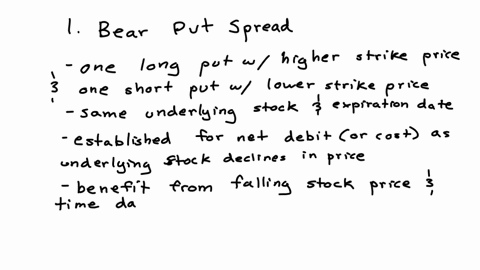 1. Bear Put Spread
- one long put w/ higher strike price
& one short put w/ lower strike price
- same underlying stock & expiration date
- established for net debit (or cost) as
underlying stock declines in price
- benefit from falling stock price &
time da